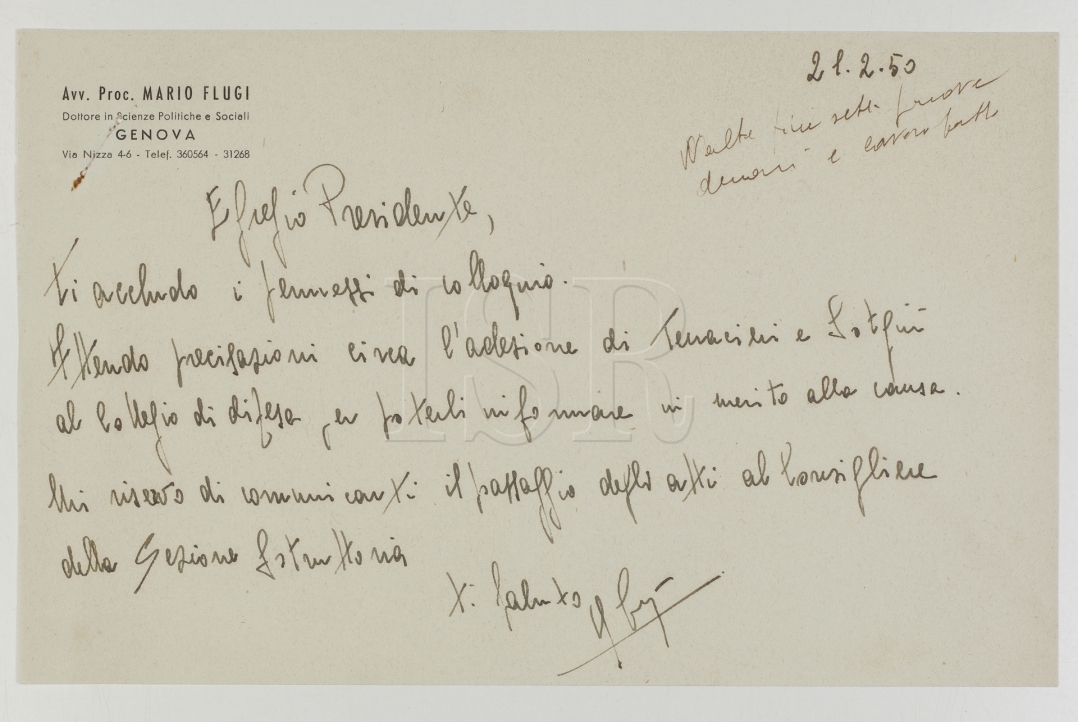 Avv. Proc. MARIO FLUGI
Dottore in Scienze Politiche e Sociali
GENOVA
Via Nizza 4-6 - Telef. 360564 - 31268
21.2.50
prove
e lavoro fatto
Egregio Presidente,
ti accludo i permessi di colloquio.
Attendo precisazioni circa l'adesione di Terracini e
al Collegio di difesa per poterli informare in merito alla causa.
Mi riservo di comunicarti il passaggio degli atti al Consigliere
della Sezione Istruttoria
ti saluto
ISR